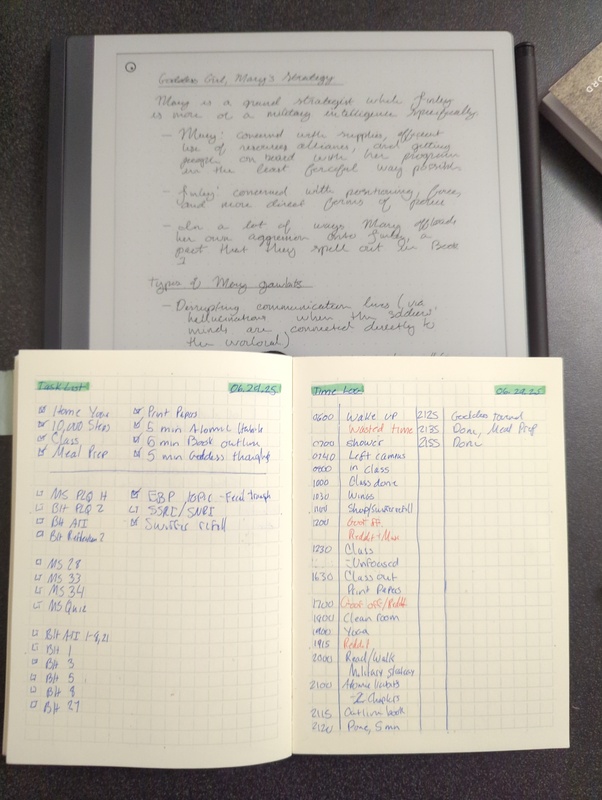 Goddess Girl, Mary's Strategy
Mary is a grand strategist while Finley
is more of a military intelligence specifically.
- Mary: concerned with supplies, efficient
use of resources, alliances, and getting
people on board with her program
in the least forceful way possible
- Finley: concerned with positioning, force,
and more direct forms of
- In a lot of ways Mary offloads
her own aggression onto Finley, a
fact that they spell out in Book
Types of Mary gambits
- Disrupting communication lines (via
hallucinations when the soldiers'
minds are connected directly to
the warlord)
Task List 06.24.25
Home Yoga
10,000 Steps
Class
Meal Prep
Print Papers
5 min Atomic Habits
5 min Book outline
5 min Goddess thought
MS PLQ H
BH PLQ 2
BH ATI
BH
EBP topic -
SSRI/SNRI
Swiffer refill
MS 28
MS 33
MS 34
MS Quiz
BH ATI 1-9, 21
BH 1
BH 3
BH 5
BH 8
BH 27
Time Log 06.24.25
0600 Wake up
Wasted time
0700 Shower
0740 Left campus
0900 in class
1000 Class done
1030 Wings
1100 Shop/Swiffer refill
1200 Goof off
Reddit +
1230 Class
- Unfocused
1630 Class out
Print Papers
1700 Goof off/Reddit
1800 Clean room
1900 Yoga
1915 Reddit
2000 Read/Walk
Military strategy
2100 Atomic habits
- 2 Chapters
2115 Outline book
2120 Done, 5 min
2125 Goddess journal
2135 Done, Meal Prep
2155 Done